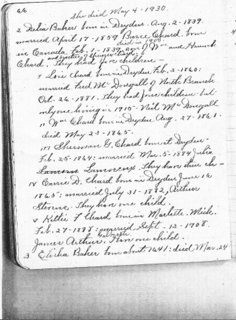 44
She died May 4 - 1930.
2 Delia Baker born in Dryden Aug. 2 - 1839.
married April 17 - 1859 Barre Chard born
in Canada Feb. 1 - 18
Chard. They had children -
1 Lois Chard born in Dryden Feb. 3 - 1860;
married Fred McDougall North Branch
Oct. 26 - 1881. They had five children but
only one living in 1915 - Neil McDougall
11 Wm Chard born in Dryden Aug. 27 - 1861.
died May 22 - 1865.
111 Sherman G. Chard born at Dryden
Feb. 25 - 1864; married Mar. 5 - 1884 Julia
They have
1V Carrie D. Chard born in Dryden June 14
1865; married July 31 - 1882, Arthur
They have one child.
V Katie F. Chard born in Marlette, Mich.
Feb. 27 - 1881; married Sept. 12 - 1908.
James Arthur. Have one child.
3 Elisha Baker born about 1841; died Mar. 24